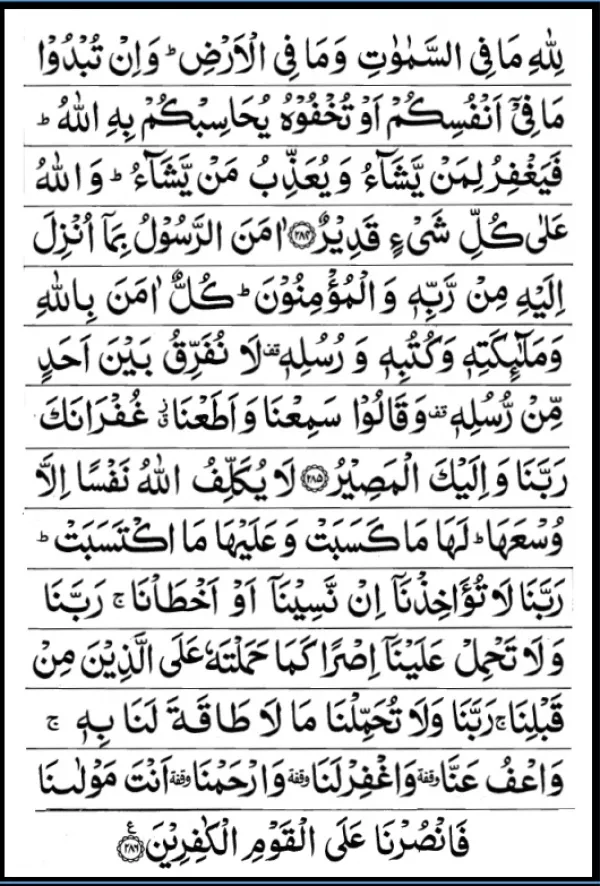 لِلّٰهِ مَا فِی السَّمٰوٰتِ وَمَا فِی الْاَرْضِ ؕ وَاِنْ تُبْدُوْا
مَا فِیْۤ اَنْفُسِكُمْ اَوْ تُخْفُوْهُ یُحَاسِبْكُمْ بِهِ اللّٰهُ ؕ
فَیَغْفِرُ لِمَنْ یَّشَآءُ وَیُعَذِّبُ مَنْ یَّشَآءُ ؕ وَاللّٰهُ
عَلٰی كُلِّ شَیْءٍ قَدِیْرٌ ﴿۲۸۴﴾ اٰمَنَ الرَّسُوْلُ بِمَاۤ اُنْزِلَ
اِلَیْهِ مِنْ رَّبِّهٖ وَالْمُؤْمِنُوْنَ ؕ كُلٌّ اٰمَنَ بِاللّٰهِ
وَمَلٰٓىِٕكَتِهٖ وَكُتُبِهٖ وَرُسُلِهٖ قف لَا نُفَرِّقُ بَیْنَ اَحَدٍ
مِّنْ رُّسُلِهٖ قف وَقَالُوْا سَمِعْنَا وَاَطَعْنَا ق ز غُفْرَانَكَ
رَبَّنَا وَاِلَیْكَ الْمَصِیْرُ ﴿۲۸۵﴾ لَا یُكَلِّفُ اللّٰهُ نَفْسًا اِلَّا
وُسْعَهَا ؕ لَهَا مَا كَسَبَتْ وَعَلَیْهَا مَا اكْتَسَبَتْ ؕ
رَبَّنَا لَا تُؤَاخِذْنَاۤ اِنْ نَّسِیْنَاۤ اَوْ اَخْطَاْنَا ۚ رَبَّنَا
وَلَا تَحْمِلْ عَلَیْنَاۤ اِصْرًا كَمَا حَمَلْتَهٗ عَلَی الَّذِیْنَ مِنْ
قَبْلِنَا ۚ رَبَّنَا وَلَا تُحَمِّلْنَا مَا لَا طَاقَةَ لَنَا بِهٖ ۚ
وَاعْفُ عَنَّا وقفة وَاغْفِرْ لَنَا وقفة وَارْحَمْنَا وقفة اَنْتَ مَوْلٰىنَا
فَانْصُرْنَا عَلَی الْقَوْمِ الْكٰفِرِیْنَ ﴿۲۸۶﴾ ع